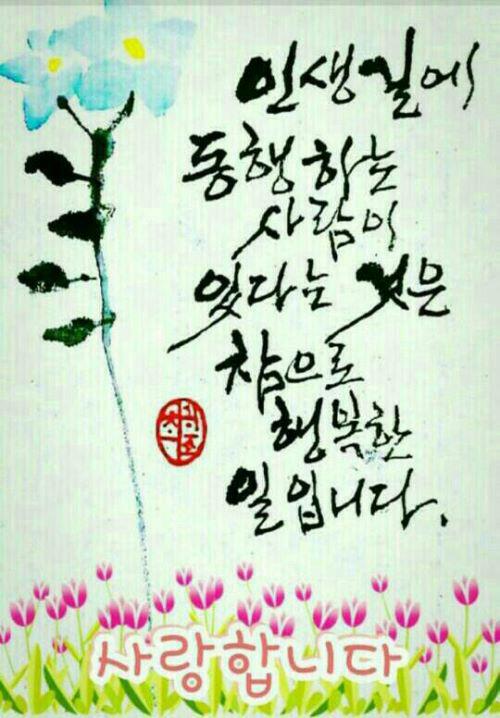 인생길에
동행하는
사람이
있다는 것은
참으로
행복한
일입니다.
사랑합니다